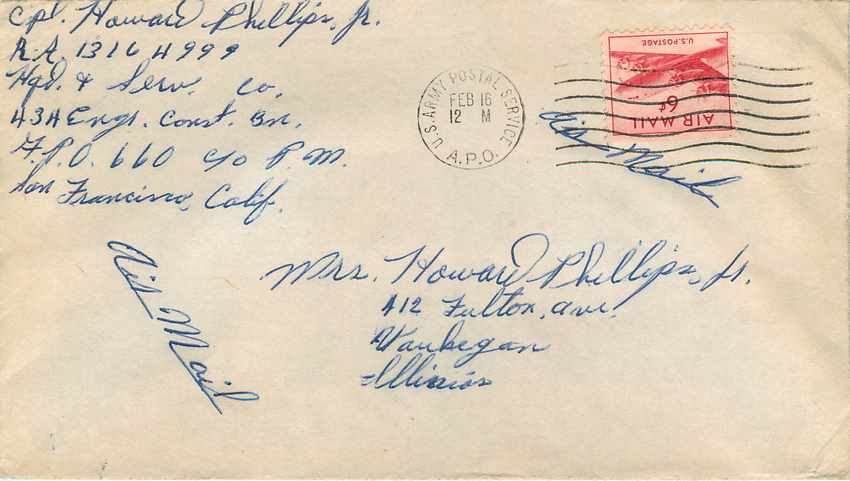 Cpl. Howard Phillips, Jr.
R.A. 13164999
Hqd. & Serv. Co.
434 Engr. Const. Bn.
A.P.O. 660 c/o P.M.
San Francisco, Calif.
U.S. ARMY POSTAL SERVICE
FEB 16
12 M
A.P.O.
U.S. POSTAGE
6¢
AIR MAIL
Air Mail
Air Mail
Mrs. Howard Phillips, Jr.
412 Fulton, ave.
Waukegan
Illinios